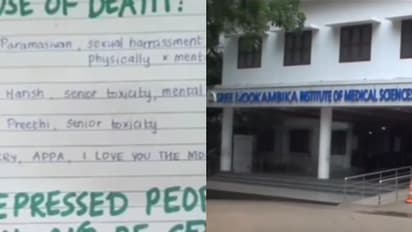 SE OF DEATH:
Paramasivan, sexual harrassment
physically × ment
Harish, senior toxicity, mental
Preethi, senior toxicity
RY, APPA, I LOVE YOU THE MO
EPRESSED PEOP
SREE MOOKAMBIKA INSTITUTE OF MEDICAL SCIENCES